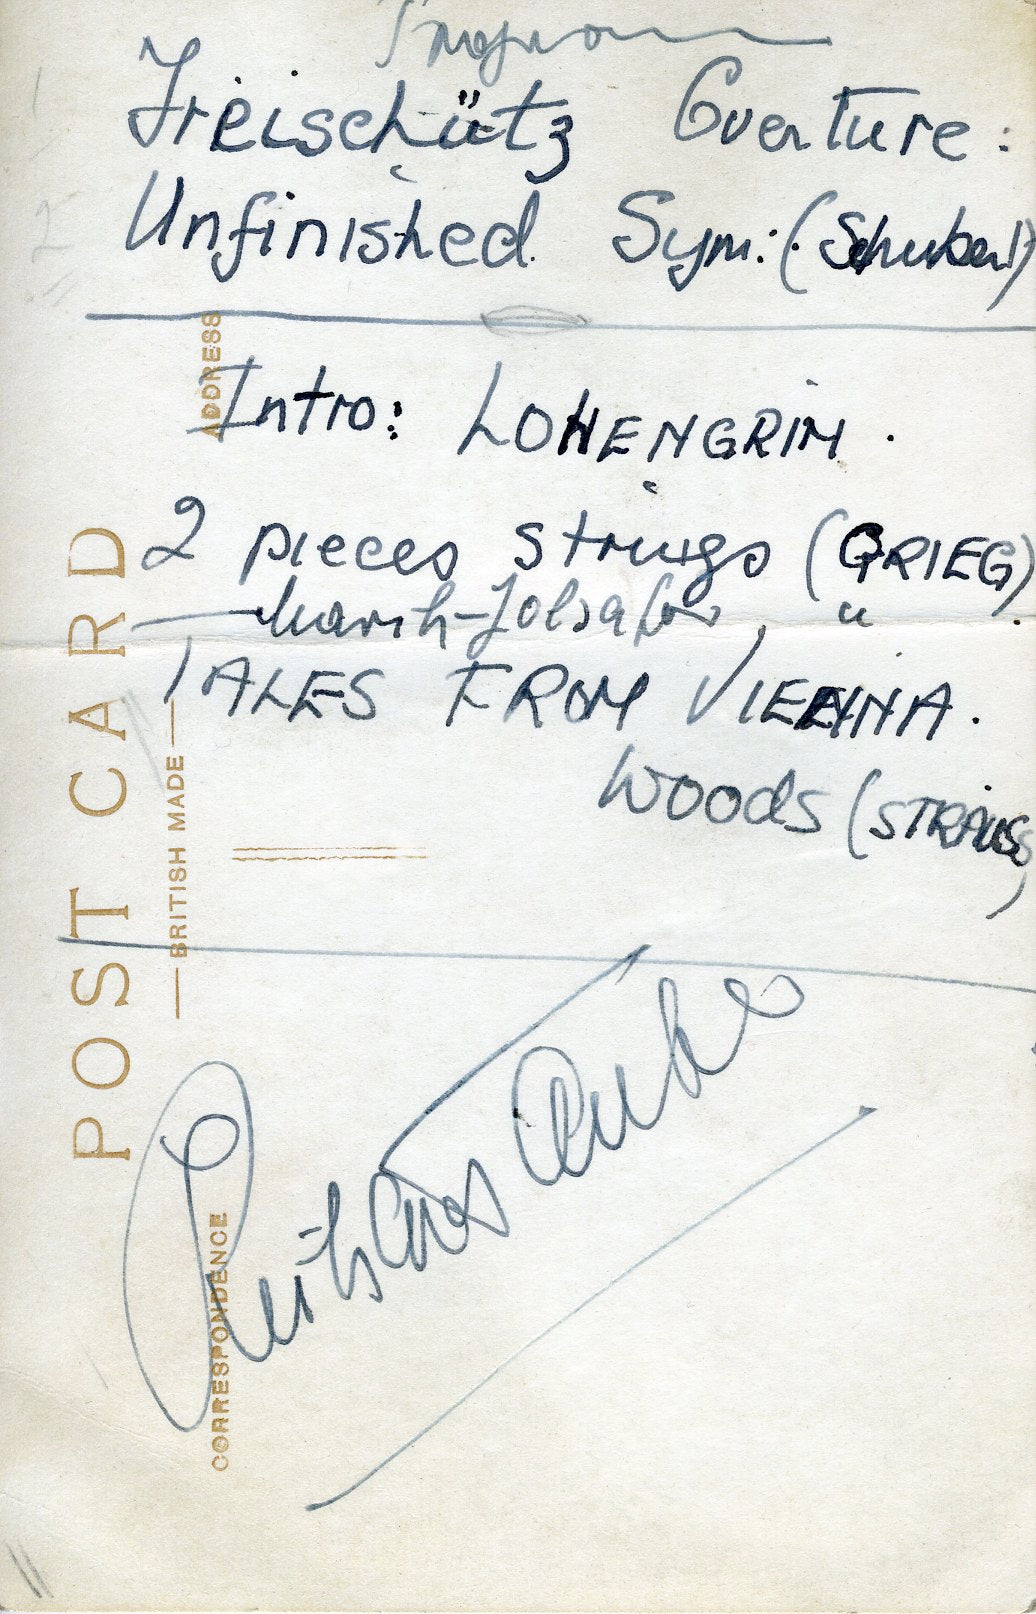 Program
Freischütz Overture:
Unfinished Sym: (Schubert)
Intro: LOHENGRIN.
2 pieces strings (GRIEG)
March-Jolsafor, "
TALES FROM VIENNA.
Woods (STRAUSS)
POST CARD
BRITISH MADE
ADDRESS
CORRESPONDENCE
1
2